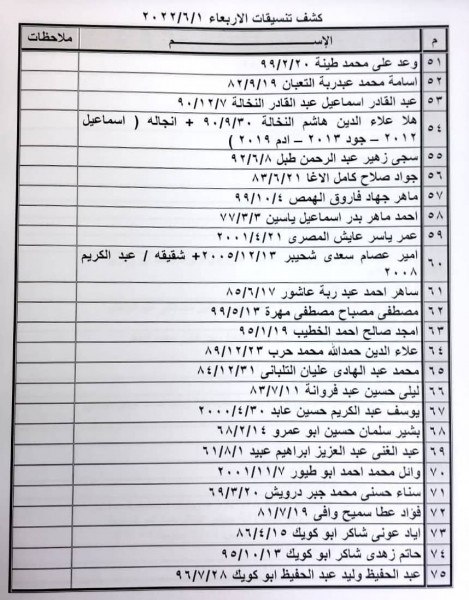 كشف تنسيقات الاربعاء ٢٠٢٢/٦/١
م الإســـــــم ملاحظات
٥١ وعد على محمد طينة ٩٩/٢/٢٠
٥٢ اسامة محمد عبدربة التعبان ٨٢/٩/١٩
٥٣ عبد القادر اسماعيل عبد القادر النخالة ٩٠/١٢/٧
٥٤ هلا علاء الدين هاشم النخالة ٩٠/٩/٣٠ + انجاله ( اسماعيل
٢٠١٢ – جود ٢٠١٣ – ادم ٢٠١٩ )
٥٥ سجى زهير عبد الرحمن طبل ٩٢/٦/٨
٥٦ جواد صلاح كامل الاغا ٨٣/٦/٢١
٥٧ ماهر جهاد فاروق الهمص ٩٩/١٠/٤
٥٨ احمد ماهر بدر اسماعيل ياسين ٧٧/٣/٣
٥٩ عمر ياسر عايش المصرى ٢٠٠١/٤/٢١
٦٠ امير عصام سعدى شحيبر ٢٠٠٥/١٢/١٣+ شقيقه / عبد الكريم
٢٠٠٨
٦١ ساهر احمد عبد ربة عاشور ٨٥/٦/١٧
٦٢ مصطفى مصباح مصطفى مهرة ٩٩/٥/١٣
٦٣ امجد صالح احمد الخطيب ٩٥/١/١٩
٦٤ علاء الدين حمدالله محمد حرب ٨٩/١٢/٢٣
٦٥ محمد عبد الهادى عليان التلبانى ٨٤/١٢/٣١
٦٦ ليلى حسين عبد فروانة ٨٣/٧/١١
٦٧ يوسف عبد الكريم حسين عابد ٢٠٠٠/٤/٣٠
٦٨ بشير سلمان حسين ابو عمرو ٦٨/٢/١٤
٦٩ عبد الغنى عبد العزيز ابراهيم عبيد ٦١/٨/١
٧٠ وائل محمد احمد ابو طيور ٢٠٠١/١١/٧
٧١ سناء حسنى محمد جبر درويش ٦٩/٣/٢٠
٧٢ فؤاد عطا سميح وافى ٨١/٧/١٩
٧٣ اياد عونى شاكر ابو كويك ٨٦/٤/١٥
٧٤ حاتم زهدى شاكر ابو كويك ٩٥/١٠/١٣
٧٥ عبد الحفيظ وليد عبد الحفيظ ابو كويك ٩٦/٧/٢٨